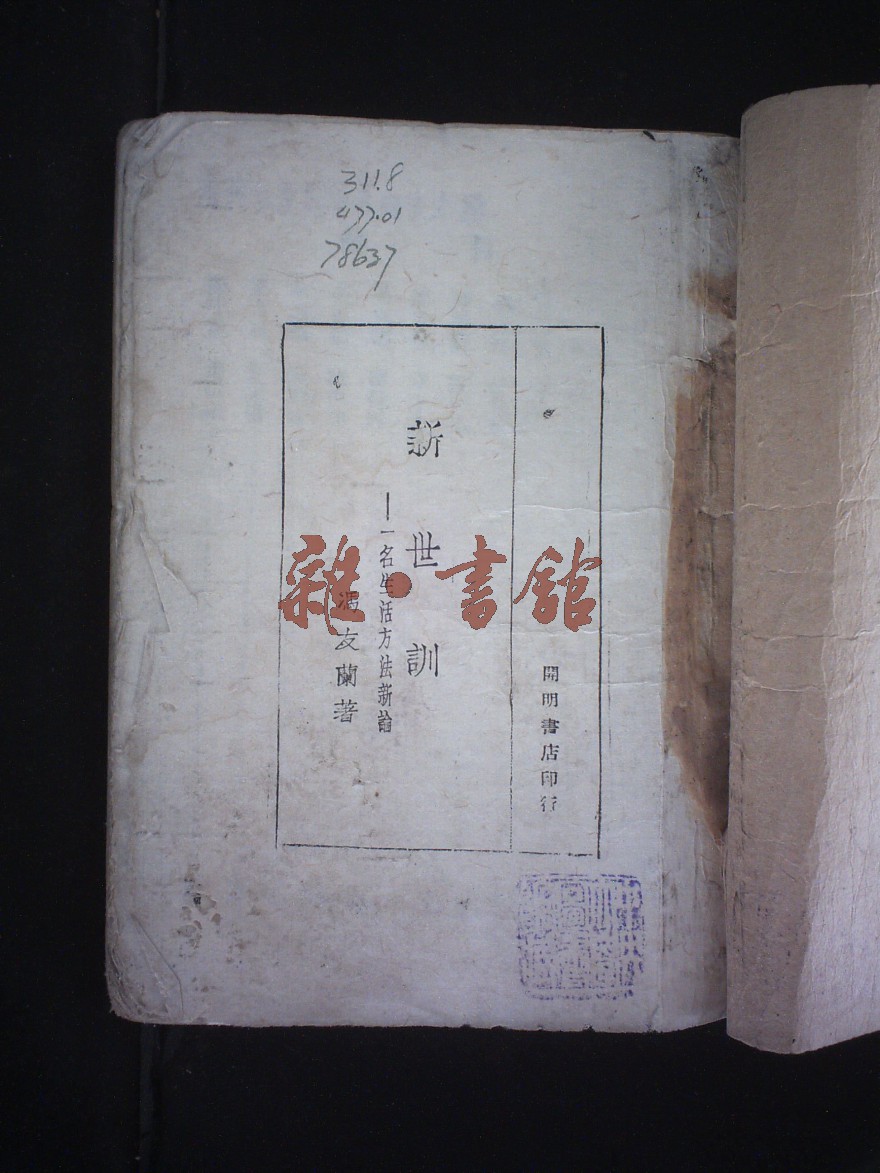 311.8
477.01
78637
開明書店印行
新世訓
—一名生活方法新論
馮友蘭著
雜·書館